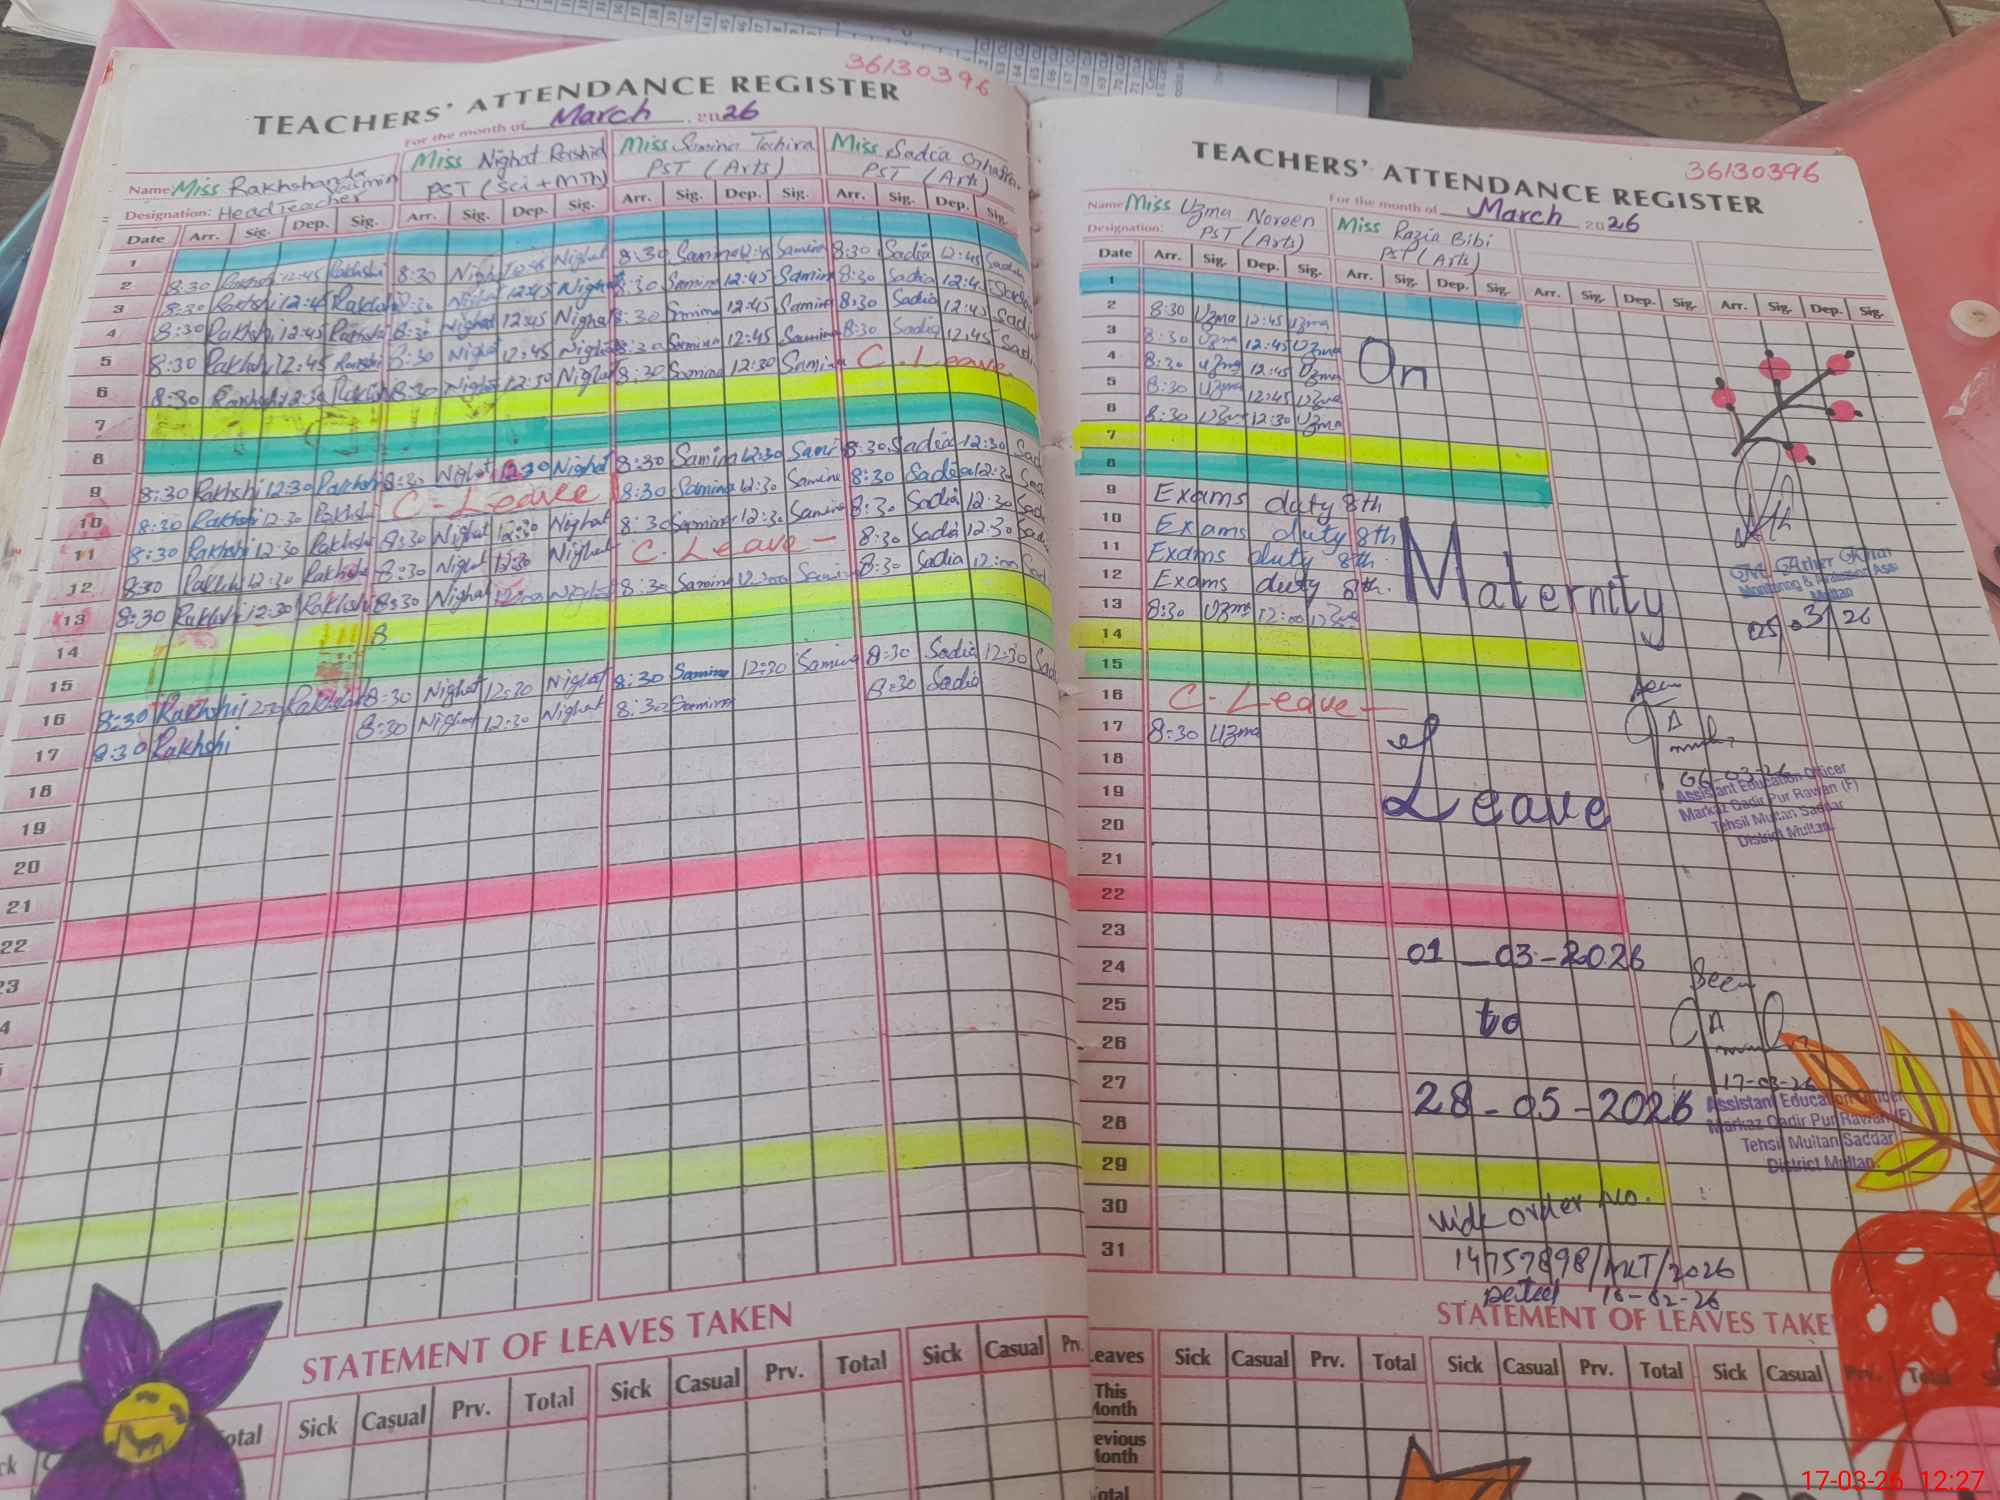 36130396
TEACHERS' ATTENDANCE REGISTER
For the month of March 2026
Name Miss Rakhshanda Yasmin Miss Nighat Rashid Miss Samina Tahira Miss Sadia
Designation: Head Teacher PST (Sci + MTh) PST (Arts) PST (Arts)
Date Arr. Sig. Dep. Sig. Arr. Sig. Dep. Sig. Arr. Sig. Dep. Sig. Arr. Sig. Dep. Sig.
1
2 8:30 Rakhshi 12:45 Rakhshi 8:30 Nighat 12:45 Nighat 8:30 Samina 12:45 Samina 8:30 Sadia 12:45 Sadia
3 8:30 Rakhshi 12:45 Rakhshi 8:30 Nighat 12:45 Nighat 8:30 Samina 12:45 Samina 8:30 Sadia 12:45
4 8:30 Rakhshi 12:45 Rakhshi 8:30 Nighat 12:45 Nighat 8:30 Samina 12:45 Samina 8:30 Sadia 12:45 Sadia
5 8:30 Rakhshi 12:45 Rakhshi 8:30 Nighat 12:45 Nighat 8:30 Samina 12:45 Samina 8:30 Sadia 12:45 Sadi
6 8:30 Rakhshi 12:30 Rakhshi 8:30 Nighat 12:30 Nighat 8:30 Samina 12:30 Samina C. Leave
7
8
9 8:30 Rakhshi 12:30 Rakhshi 8:30 Nighat 12:30 Nighat 8:30 Samina 12:30 Sami 8:30 Sadia 12:30 Sad
10 8:30 Rakhshi 12:30 Rakhshi C-Leave 8:30 Samina 12:30 Samina 8:30 Sadia 12:30 Sad
11 8:30 Rakhshi 12:30 Rakhshi 8:30 Nighat 12:30 Nighat 8:30 Samina 12:30 Samina 8:30 Sadia 12:30 Sad
12 8:30 Rakhshi 12:30 Rakhshi 8:30 Nighat 12:30 Nighat C. Leave - 8:30 Sadia 12:30 Sadi
13 8:30 Rakhshi 12:30 Rakhshi 8:30 Nighat 12:00 Nighat 8:30 Samina 12:00 Samina 8:30 Sadia 12:00 Sad
14 8
15
16 8:30 Rakhshi Rakhshi 8:30 Nighat 12:30 Nighat 8:30 Samina 12:30 Samina 8:30 Sadia 12:30 Sad
17 8:30 Rakhshi 8:30 Nighat 12:30 Nighat 8:30 Samina 8:30 Sadia
18
19
20
21
22
23
4
STATEMENT OF LEAVES TAKEN
otal Sick Casual Prv. Total Sick Casual Prv. Total Sick Casual Prv.
36130396
TEACHERS' ATTENDANCE REGISTER
For the month of March 2026
Name Miss Uzma Noreen Miss Razia Bibi
Designation: PST (Arts) PST (Arts)
Date Arr. Sig. Dep. Sig. Arr. Sig. Dep. Sig. Arr. Sig. Dep. Sig. Arr. Sig. Dep. Sig.
1
2 8:30 Uzma 12:45 Uzma
3 8:30 Uzma 12:45 Uzma
4 8:30 Uzma 12:45 Uzma On
5 8:30 Uzma 12:45 Uzma
6 8:30 Uzma 12:30 Uzma
7
8
9 Exams duty 8th
10 Exams duty 8th
11 Exams duty 8th Maternity
12 Exams duty 8th.
13 8:30 Uzma 12:00 Uzma
Monitoring &
Multan
05/03/26
14
15
16 C-Leave -
17 8:30 Uzma
18
19 Leave
20
Seen
06-03-26
Assistant Education Officer
Markaz Qadir Pur Rawan (F)
Tehsil Multan Saddar
District Multan.
21
22
23
24 01-03-2026
25
26 to
27
28 28-05-2026
Seen
17-03-26
Assistant Education Officer
Markaz Qadir Pur Rawan (F)
Tehsil Multan Saddar
District Multan.
29
30 vide order No.
31 14757898/MLT/2026
Dated 16-02-26
STATEMENT OF LEAVES TAKE
Leaves Sick Casual Prv. Total Sick Casual Prv. Total Sick Casual Prv. Total
This Month
evious Month
otal
17-03-26 12:27